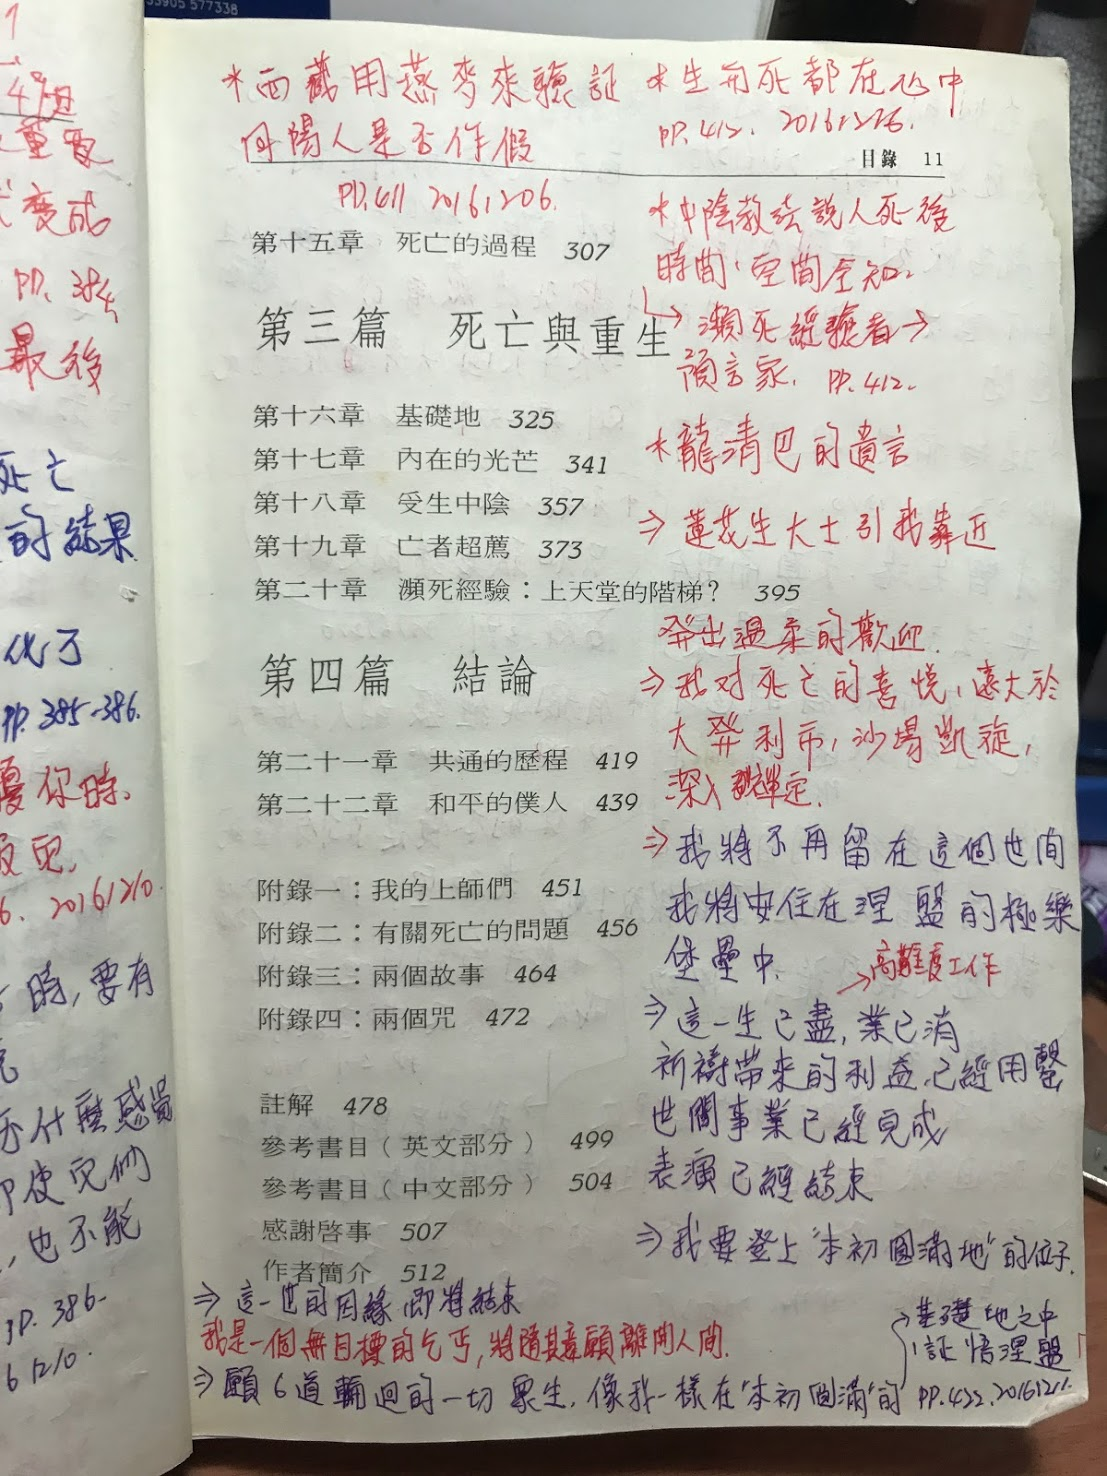 33905 577338
*西藏用燕麥來驗証
冊陽人是否作假
PP.411 20161206.
*生和死都在心中
PP.412. 20161206.
目錄 11
第十五章 死亡的過程 307
*中陰教法說人死後
時間、空間全知.
→瀕死經驗者→
預言家. PP.412.
第三篇 死亡與重生
第十六章 基礎地 325
第十七章 內在的光芒 341
第十八章 受生中陰 357
第十九章 亡者超薦 373
第二十章 瀕死經驗：上天堂的階梯？ 395
*龍清巴的遺言
⇒蓮花生大士引我靠近
發出溫柔的歡迎.
⇒我对死亡的喜悅，遠大於
大發利市，沙場凱旋，
深入禪定.
第四篇 結論
第二十一章 共通的歷程 419
第二十二章 和平的僕人 439
附錄一：我的上師們 451
附錄二：有關死亡的問題 456
附錄三：兩個故事 464
附錄四：兩個咒 472
註解 478
參考書目（英文部分） 499
參考書目（中文部分） 504
感謝啓事 507
作者簡介 512
⇒我將不再留在這個世间
我將安住在涅盤的極樂
堡壘中.
→高難度工作
⇒這一生已盡，業已消
祈禱帶來的利益，已經用罄
世間事業已經完成
表演已經結束
⇒我要登上“本初圓滿地”的位子.
⇒這一世的因緣即將結束
我是一個無目標的乞丐，將隨其意願離開人間.
⇒願6道輪迴的一切眾生，像我一樣在“本初圓滿”的
→基礎地之中
証悟涅盤
PP.422. 20161211.
重要
變成
PP. 384
最後
死亡
的結果
化了
PP. 385-386.
擾你時、
20161210
時，要有
什麼感覺
即使它們
，也不能
PP. 386-
61210.